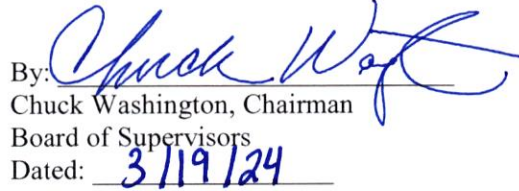 By: Chuck Wa
Chuck Washington, Chairman
Board of Supervisors
Dated: 3/19/24